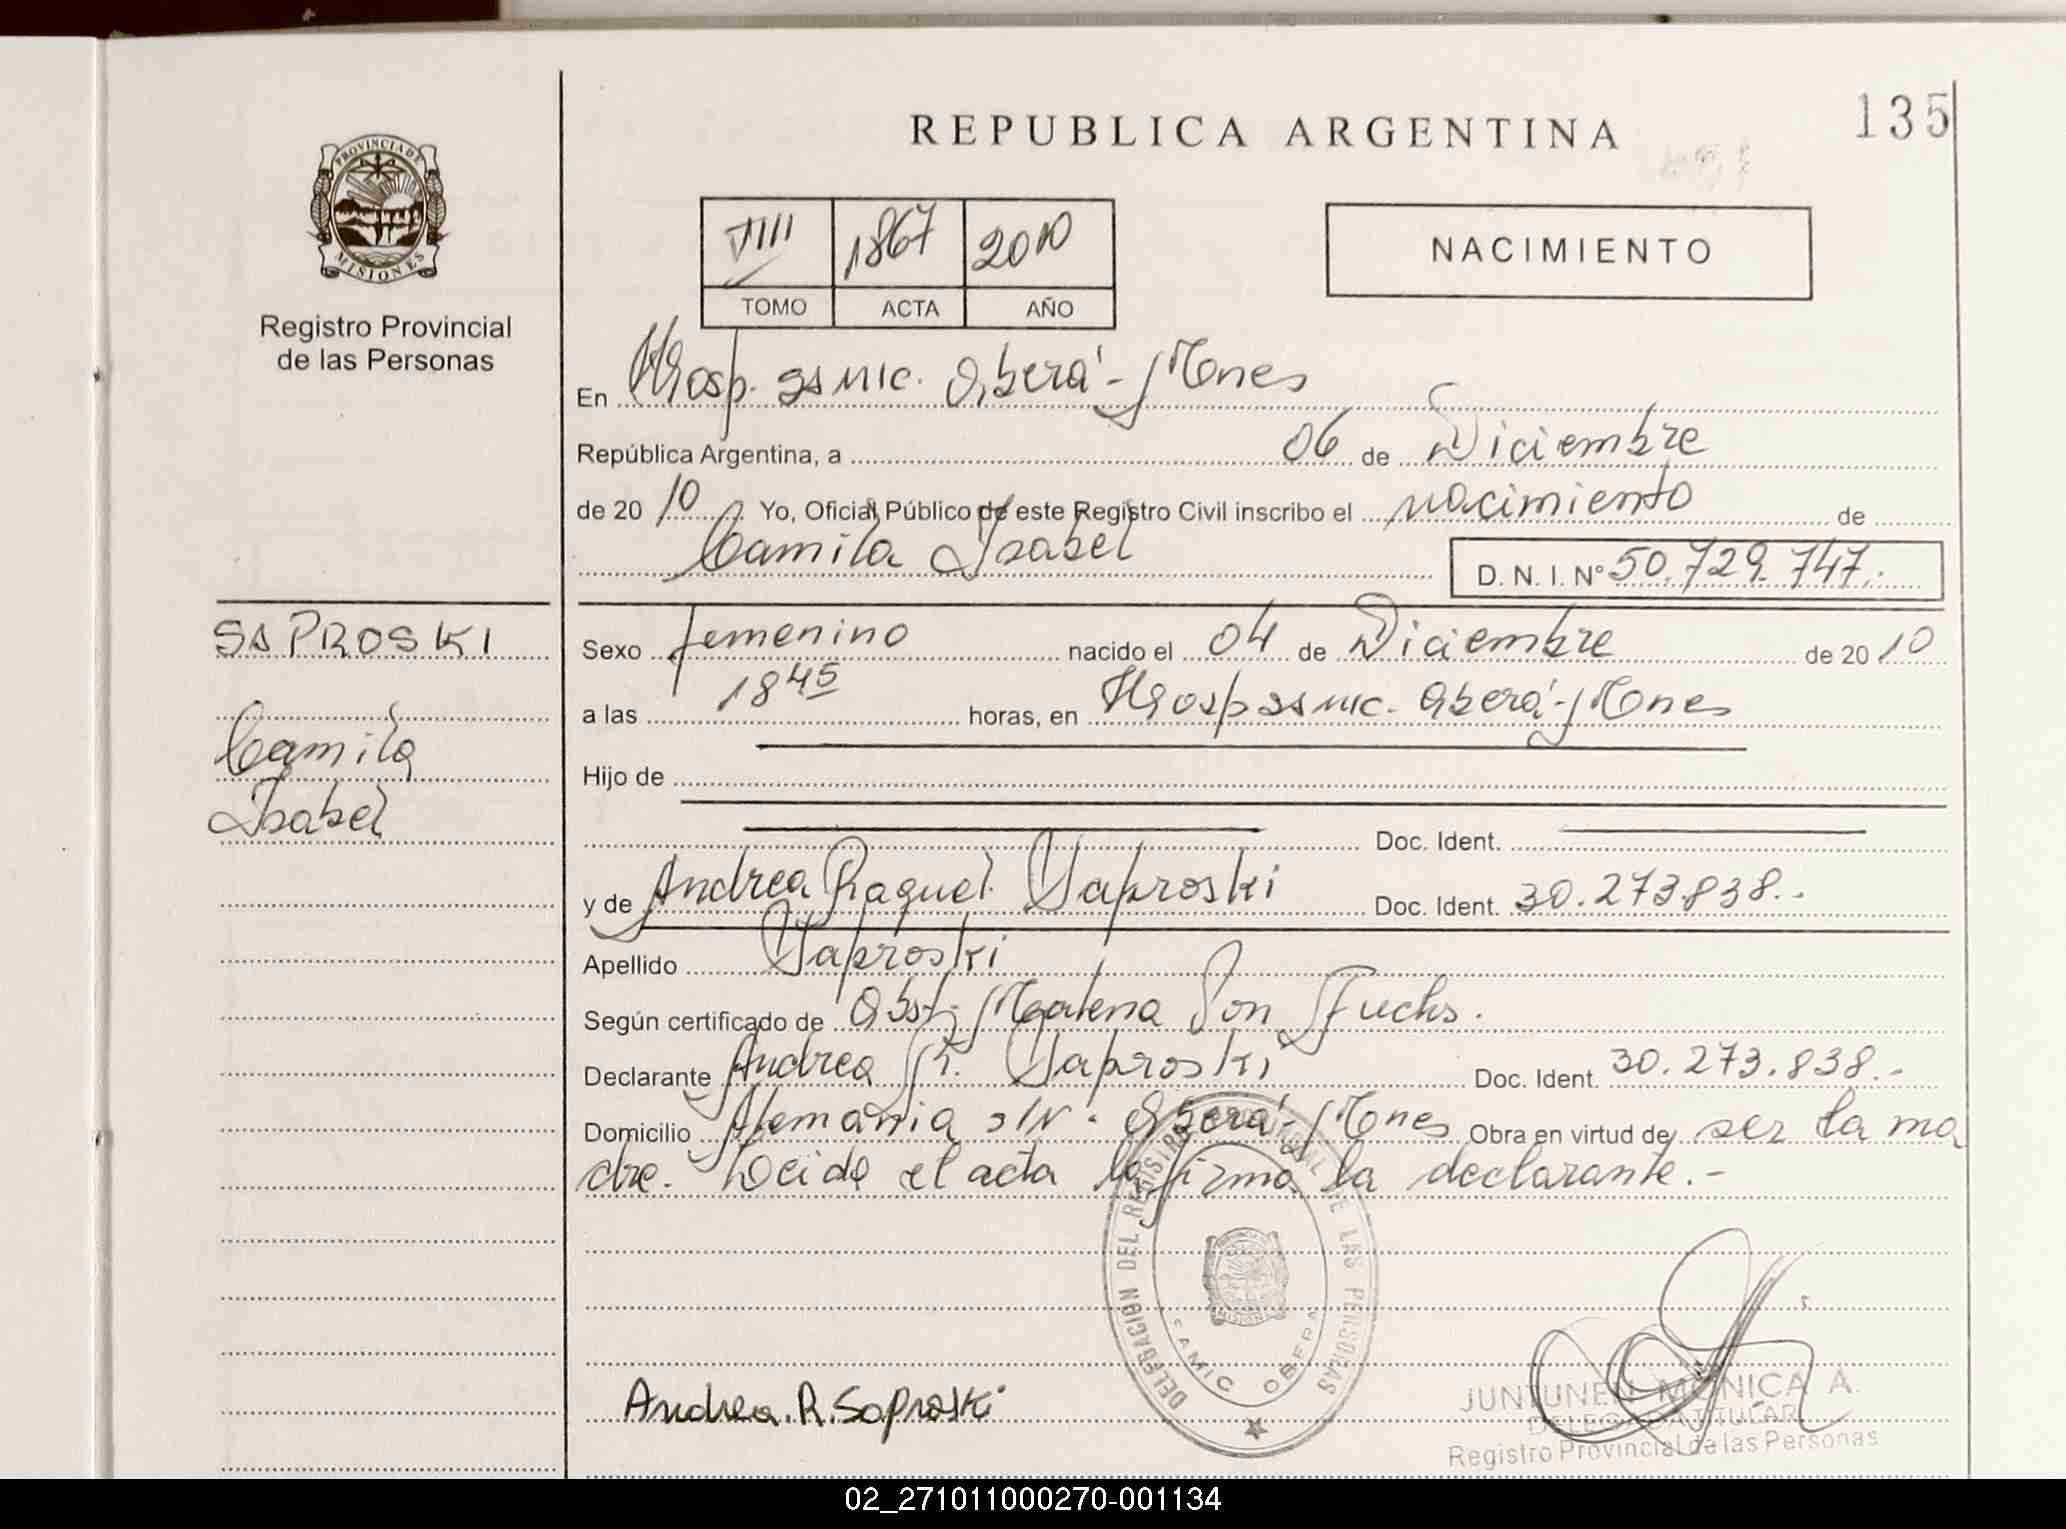 135
REPUBLICA ARGENTINA
PROVINCIA DE
MISIONES
Registro Provincial
de las Personas
VIII 1867 2010
TOMO ACTA AÑO
NACIMIENTO
En Hosp. SAMIC. Oberá - Mnes
República Argentina, a 06 de Diciembre
de 20 10 Yo, Oficial Público de este Registro Civil inscribo el nacimiento de
Camila Isabel D. N. I. Nº 50.729.747.-
SAPROSKI
Camila
Isabel
Sexo femenino nacido el 04 de Diciembre de 20 10
a las 18 45 horas, en Hosp SAMIC. Oberá - Mnes
Hijo de
Doc. Ident.
y de Andrea Raquel Saproski Doc. Ident. 30.273.838.-
Apellido Saproski
Según certificado de Obst. Von Fuchs.
Declarante Andrea R. Saproski Doc. Ident. 30.273.838.-
Domicilio Alemania S/N. Oberá - Mnes Obra en virtud de ser la ma
dre. Leida el acta la firma la declarante.-
DELEGACION DEL REGISTRO PROVINCIAL DE LAS PERSONAS
MISIONES
SAMIC OBERA
Andrea. R. Saproski
JUNTUNEN MONICA A.
DELEGADA TITULAR
Registro Provincial de las Personas
02_271011000270-001134